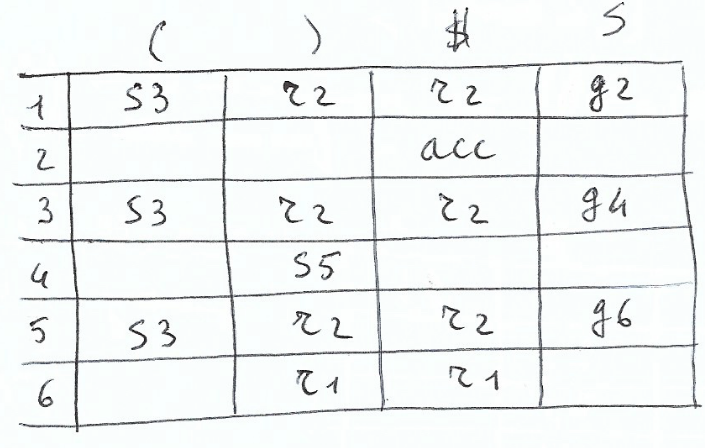 ( ) $ S
1 s3 r2 r2 g2
2 acc
3 s3 r2 r2 g4
4 s5
5 s3 r2 r2 g6
6 r1 r1